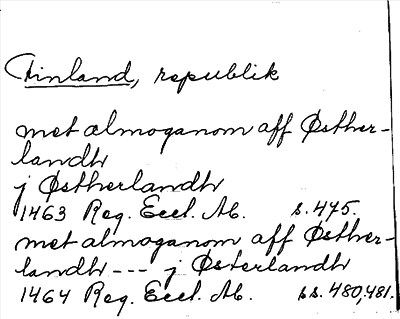 Finland, republik
met almoganom aff Østher-
landh
j Østherlandh
1463 Reg. Eccl. Ab. s. 475.
met almoganom aff Østher-
landh --- j Østerlandh
1464 Reg. Eccl. Ab. ss. 480,481.